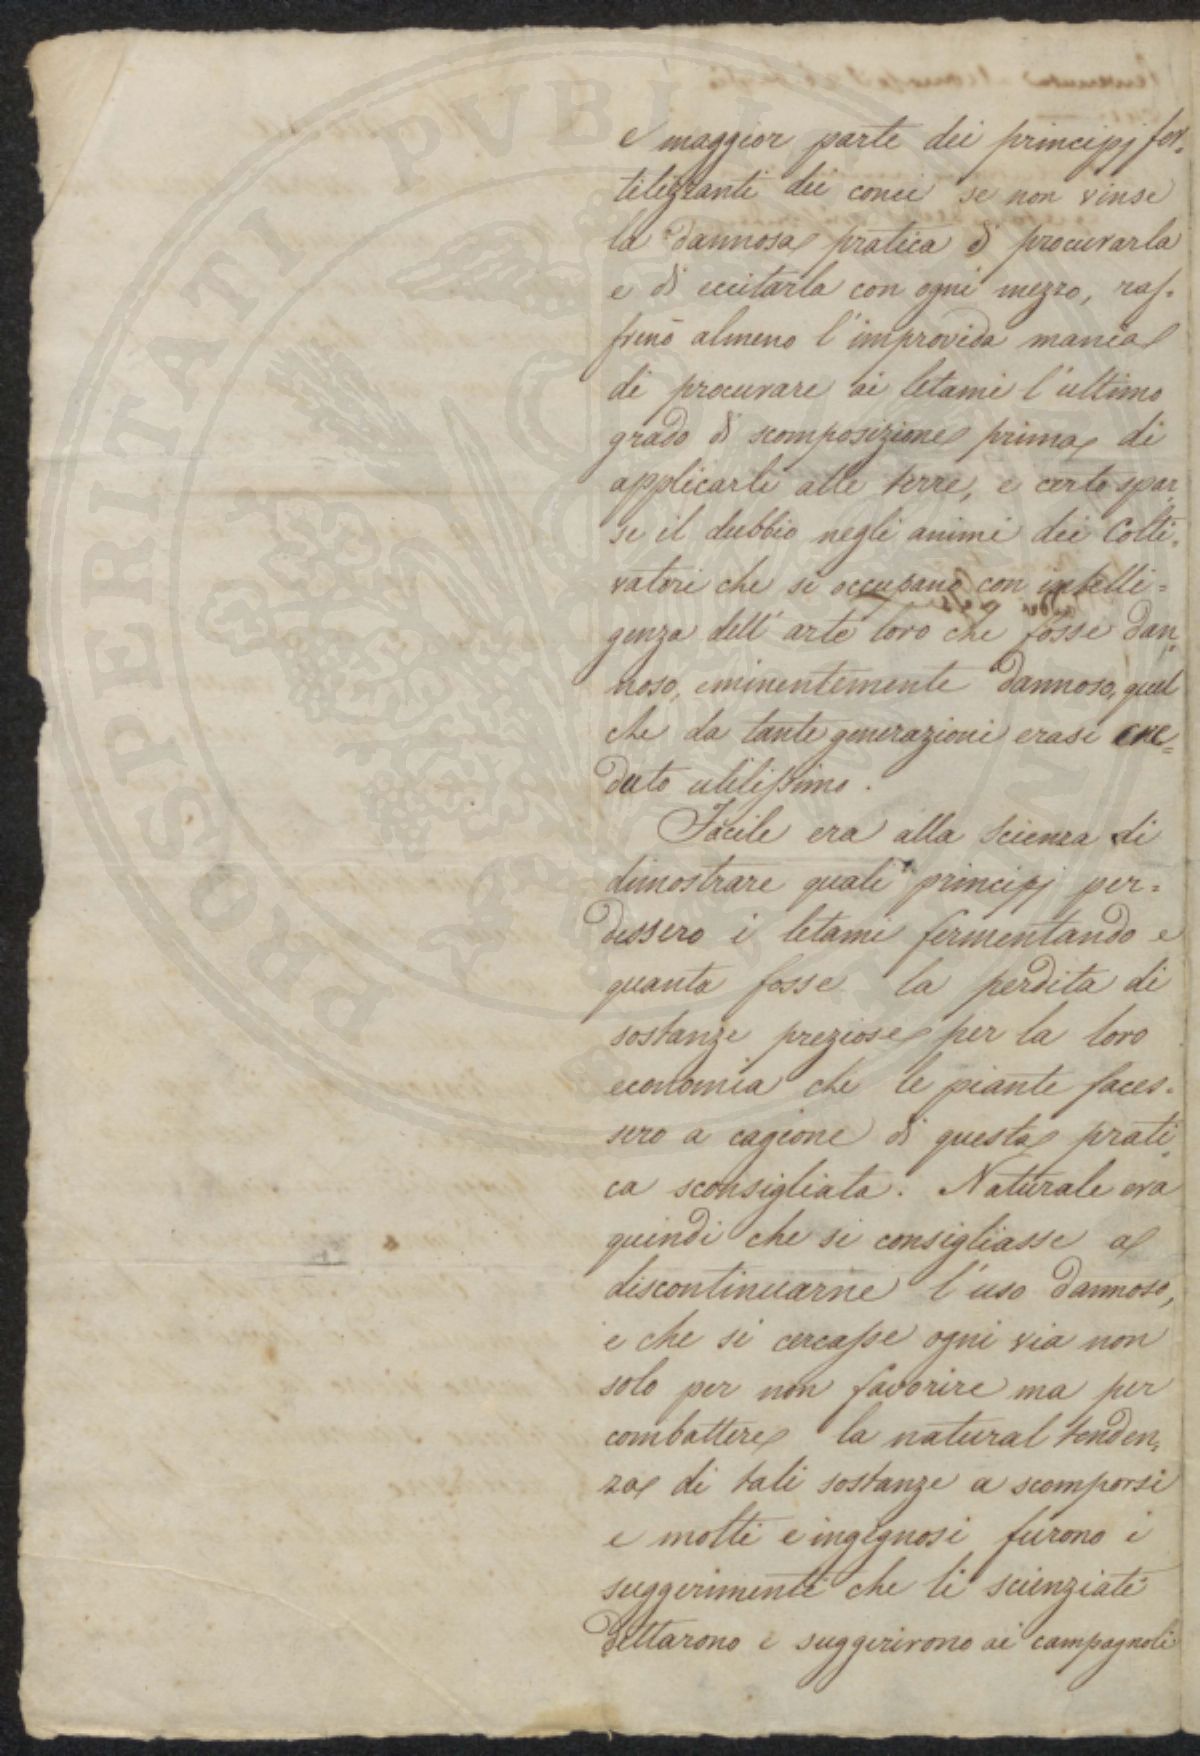 e maggior parte dei principj fer-
tilizzanti dei conci se non vinse
la dannosa pratica di procurarla
e di eccitarla con ogni mezzo, raf-
frenò almeno l'improvida mania
di procurare ai letami l'ultimo
grado di scomposizione prima di
applicarli alle terre, e certo spar-
se il dubbio negli animi dei Colti-
vatori che si occupano con intelli=
genza dell'arte loro che fosse dan-
noso, eminentemente dannoso, quel
che da tante generazioni erasi cre=
duto utilissimo.
Facile era alla scienza di
dimostrare quali principj per=
dessero i letami fermentando e
quanta fosse la perdita di
sostanze preziose per la loro
economia che le piante faces-
sero a cagione di questa prati-
ca sconsigliata. Naturale era
quindi che si consigliasse a
discontinuarne l'uso dannoso,
e che si cercasse ogni via non
solo per non favorire ma per
combattere la natural tenden-
za di tali sostanze a scomporsi
e molti e ingegnosi furono i
suggerimenti che li scienziati
dettarono e suggerirono ai campagnoli
PROSPERITATI PVBLI